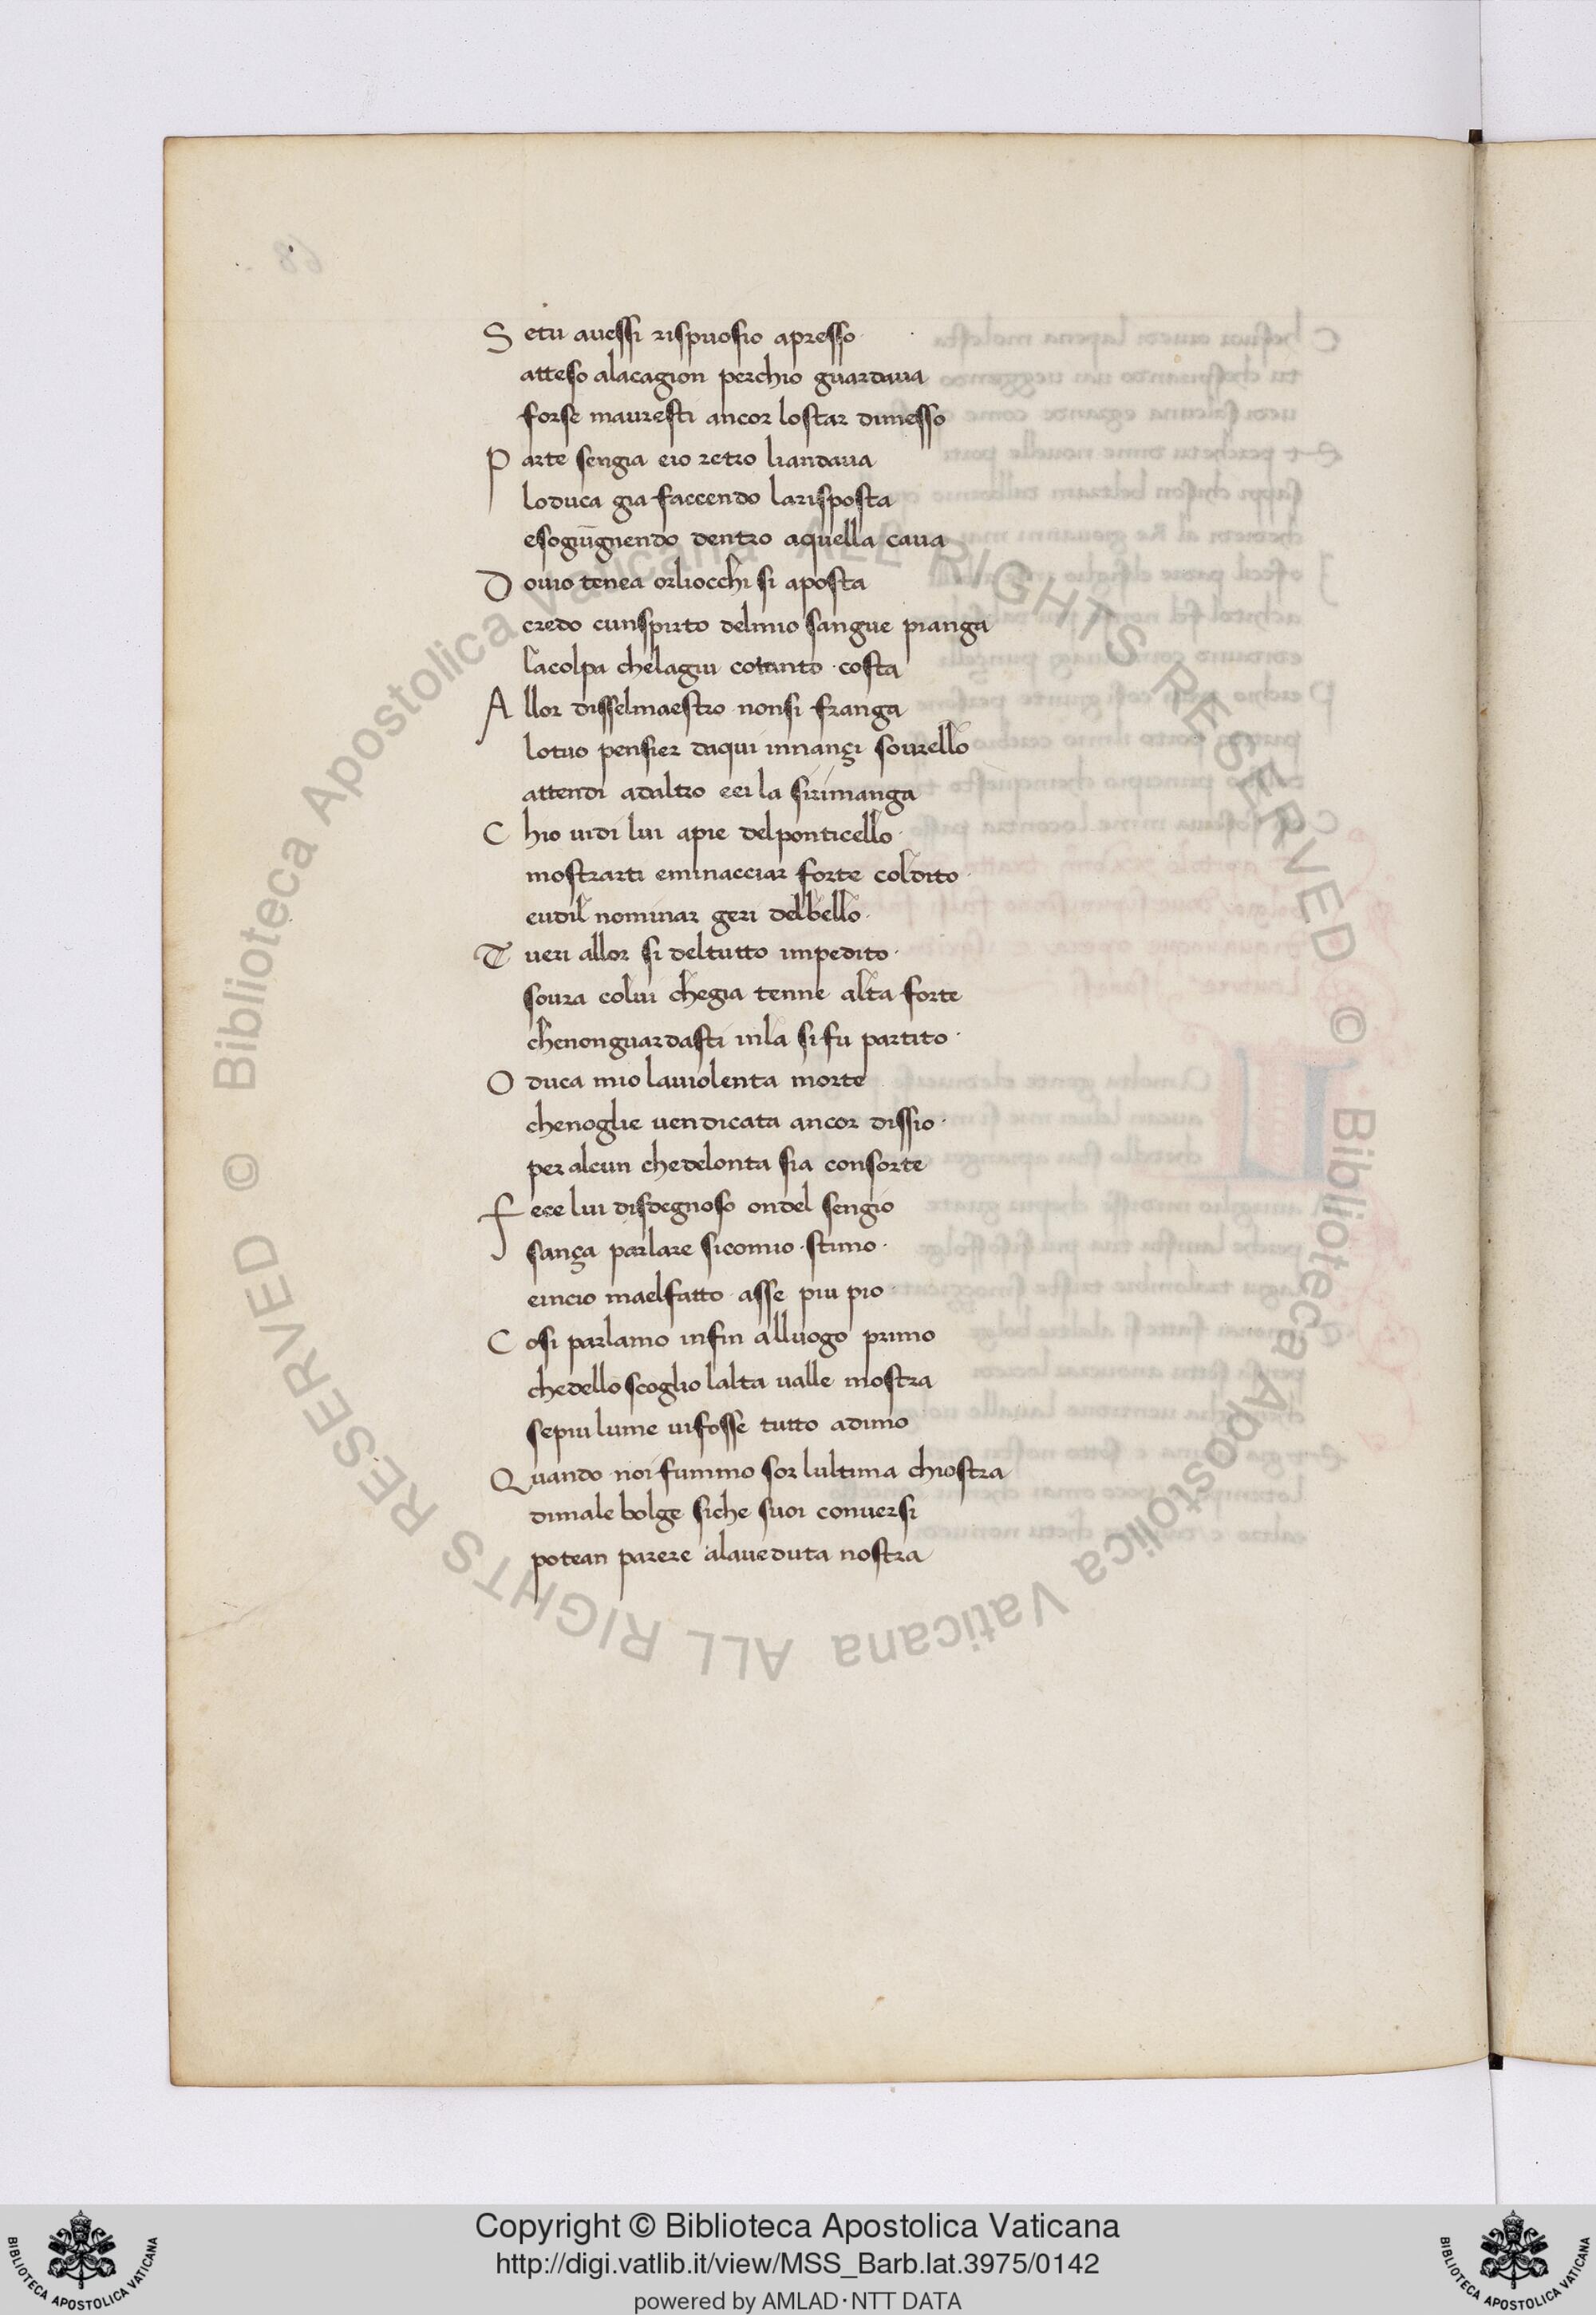 S etu auessi rispuosio apresso·
atteso alacagion perchio guardaua
forse mauresti ancor lostar dimesso
P arte sengia eio retro liandaua
loduca gia faccendo larisposta
esogiūgnendo dentro aquella caua
D ouio tenea orliocchi si aposta
credo cunspirto delmio sangue pianga
lacolpa chelagiu cotanto·costa
A llor disselmaestro nonsi franga
lotuo pensier daqui innançi sourello
attendi adaltro eei la sirimanga
C hio uidi lui apie delponticello·
mostrarti eminacciar forte coldito·
eudil nominar geri delbello·
T ueri allor si deltutto impedito·
soura colui chegia tenne alta forte
chenonguardasti inla sifu partito·
O duca mio lauiolenta morte
chenoglie uendicata ancor dissio·
per alcun chedelonta sia consorte
f ece lui disdegnoso ondel sengio
sança parlare sicomio·stimo·
eincio maelfatto·asse piu pio·
C osi parlamo infin alluogo primo
chedello scoglio lalta ualle mostra
sepiu lume uifosse tutto adimo
Q uando noi fummo sor lultima chiostra
dimale bolge siche suoi conuersi
potean parere alaueduta nostra
Biblioteca Apostolica Vaticana ALL RIGHTS RESERVED ©
Biblioteca Apostolica Vaticana ALL RIGHTS RESERVED ©
Copyright © Biblioteca Apostolica Vaticana
http://digi.vatlib.it/view/MSS_Barb.lat.3975/0142
powered by AMLAD·NTT DATA
BIBLIOTECA APOSTOLICA VATICANA
BIBLIOTECA APOSTOLICA VATICANA